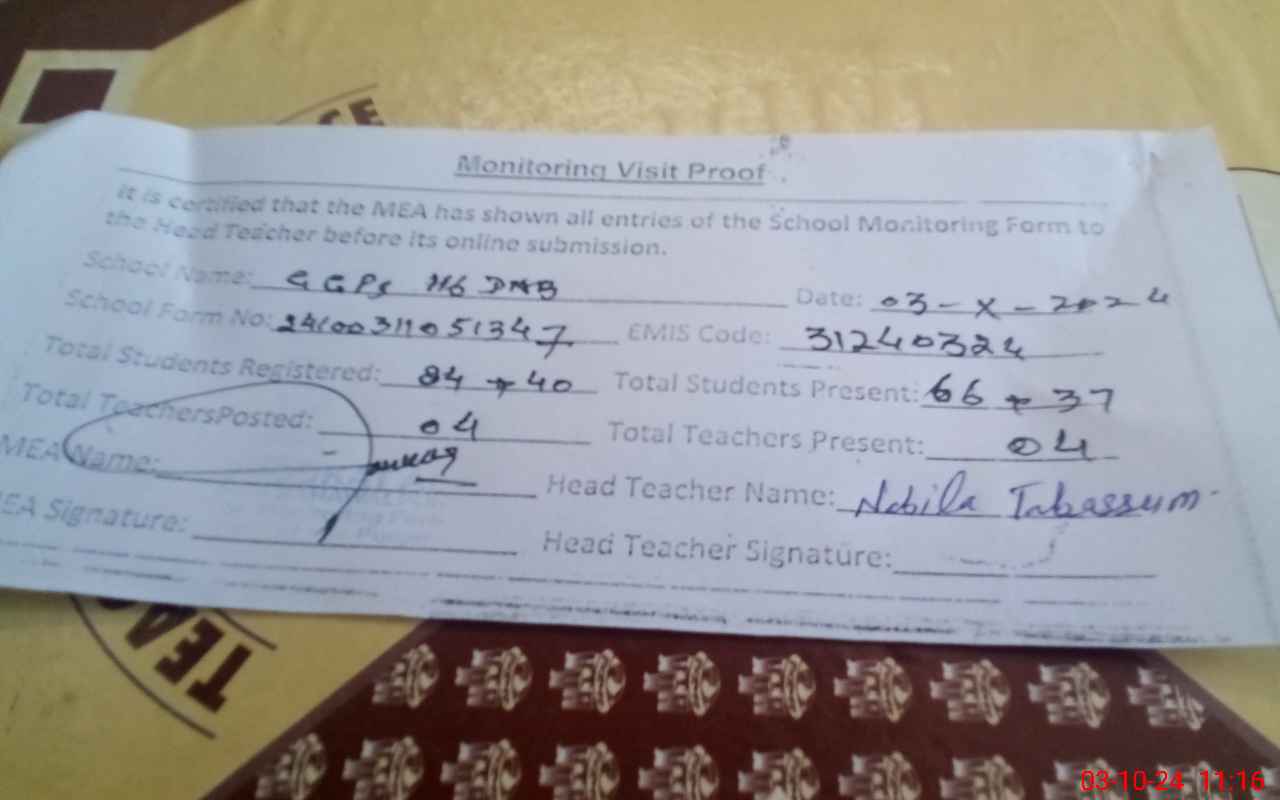 CE
Monitoring Visit Proof
It is certified that the MEA has shown all entries of the School Monitoring Form to
the Head Teacher before its online submission.
School Name: GGPS 116 DNB Date: 03-X-2024
School Form No: EMIS Code: 31240324
Total Students Registered: 84+40 Total Students Present: 66+37
Total TeachersPosted: 04 Total Teachers Present: 04
MEA Name: Head Teacher Name: Nabila Tabassum
MEA Signature: Head Teacher Signature:
TEA
03-10-24 11:16